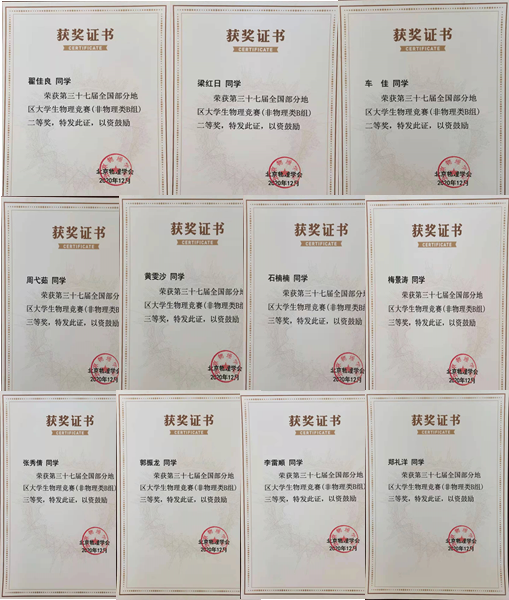 获奖证书
翟佳良 同学
荣获第三十七届全国部分地
区大学生物理竞赛(非物理类B组)
二等奖，特发此证，以资鼓励
北京物理学会
2020年12月
获奖证书
梁红日 同学
荣获第三十七届全国部分地
区大学生物理竞赛(非物理类B组)
二等奖，特发此证，以资鼓励
北京物理学会
2020年12月
获奖证书
车 佳 同学
荣获第三十七届全国部分地
区大学生物理竞赛(非物理类B组)
二等奖，特发此证，以资鼓励
北京物理学会
2020年12月
获奖证书
CERTIFICATE
周弋茹 同学
荣获第三十七届全国部分地
区大学生物理竞赛(非物理类B组
三等奖，特发此证，以资鼓励
北京物理学会
2020年12月
获奖证书
CERTIFICATE
黄雯沙 同学
荣获第三十七届全国部分地
区大学生物理竞赛(非物理类B组)
三等奖，特发此证，以资鼓励
北京物理学会
2020年12月
获奖证书
CERTIFICATE
石楠楠 同学
荣获第三十七届全国部分地
区大学生物理竞赛(非物理类B组)
三等奖，特发此证，以资鼓励
北京物理学会
2020年12月
获奖证书
CERTIFICATE
梅景涛 同学
荣获第三十七届全国部分地
区大学生物理竞赛(非物理类B组)
三等奖，特发此证，以资鼓励
北京物理学会
2020年12月
获奖证书
CERTIFICATE
张秀倩 同学
荣获第三十七届全国部分地
区大学生物理竞赛(非物理类B组)
三等奖，特发此证，以资鼓励
北京物理学会
2020年12月
获奖证书
CERTIFICATE
郭振龙 同学
荣获第三十七届全国部分地
区大学生物理竞赛(非物理类B组)
三等奖，特发此证，以资鼓励
北京物理学会
2020年12月
获奖证书
CERTIFICATE
李雷顺 同学
荣获第三十七届全国部分地
区大学生物理竞赛(非物理类B组)
三等奖，特发此证，以资鼓励
北京物理学会
2020年12月
获奖证书
CERTIFICATE
郑礼洋 同学
荣获第三十七届全国部分地
区大学生物理竞赛(非物理类B组)
三等奖，特发此证，以资鼓励
北京物理学会
2020年12月